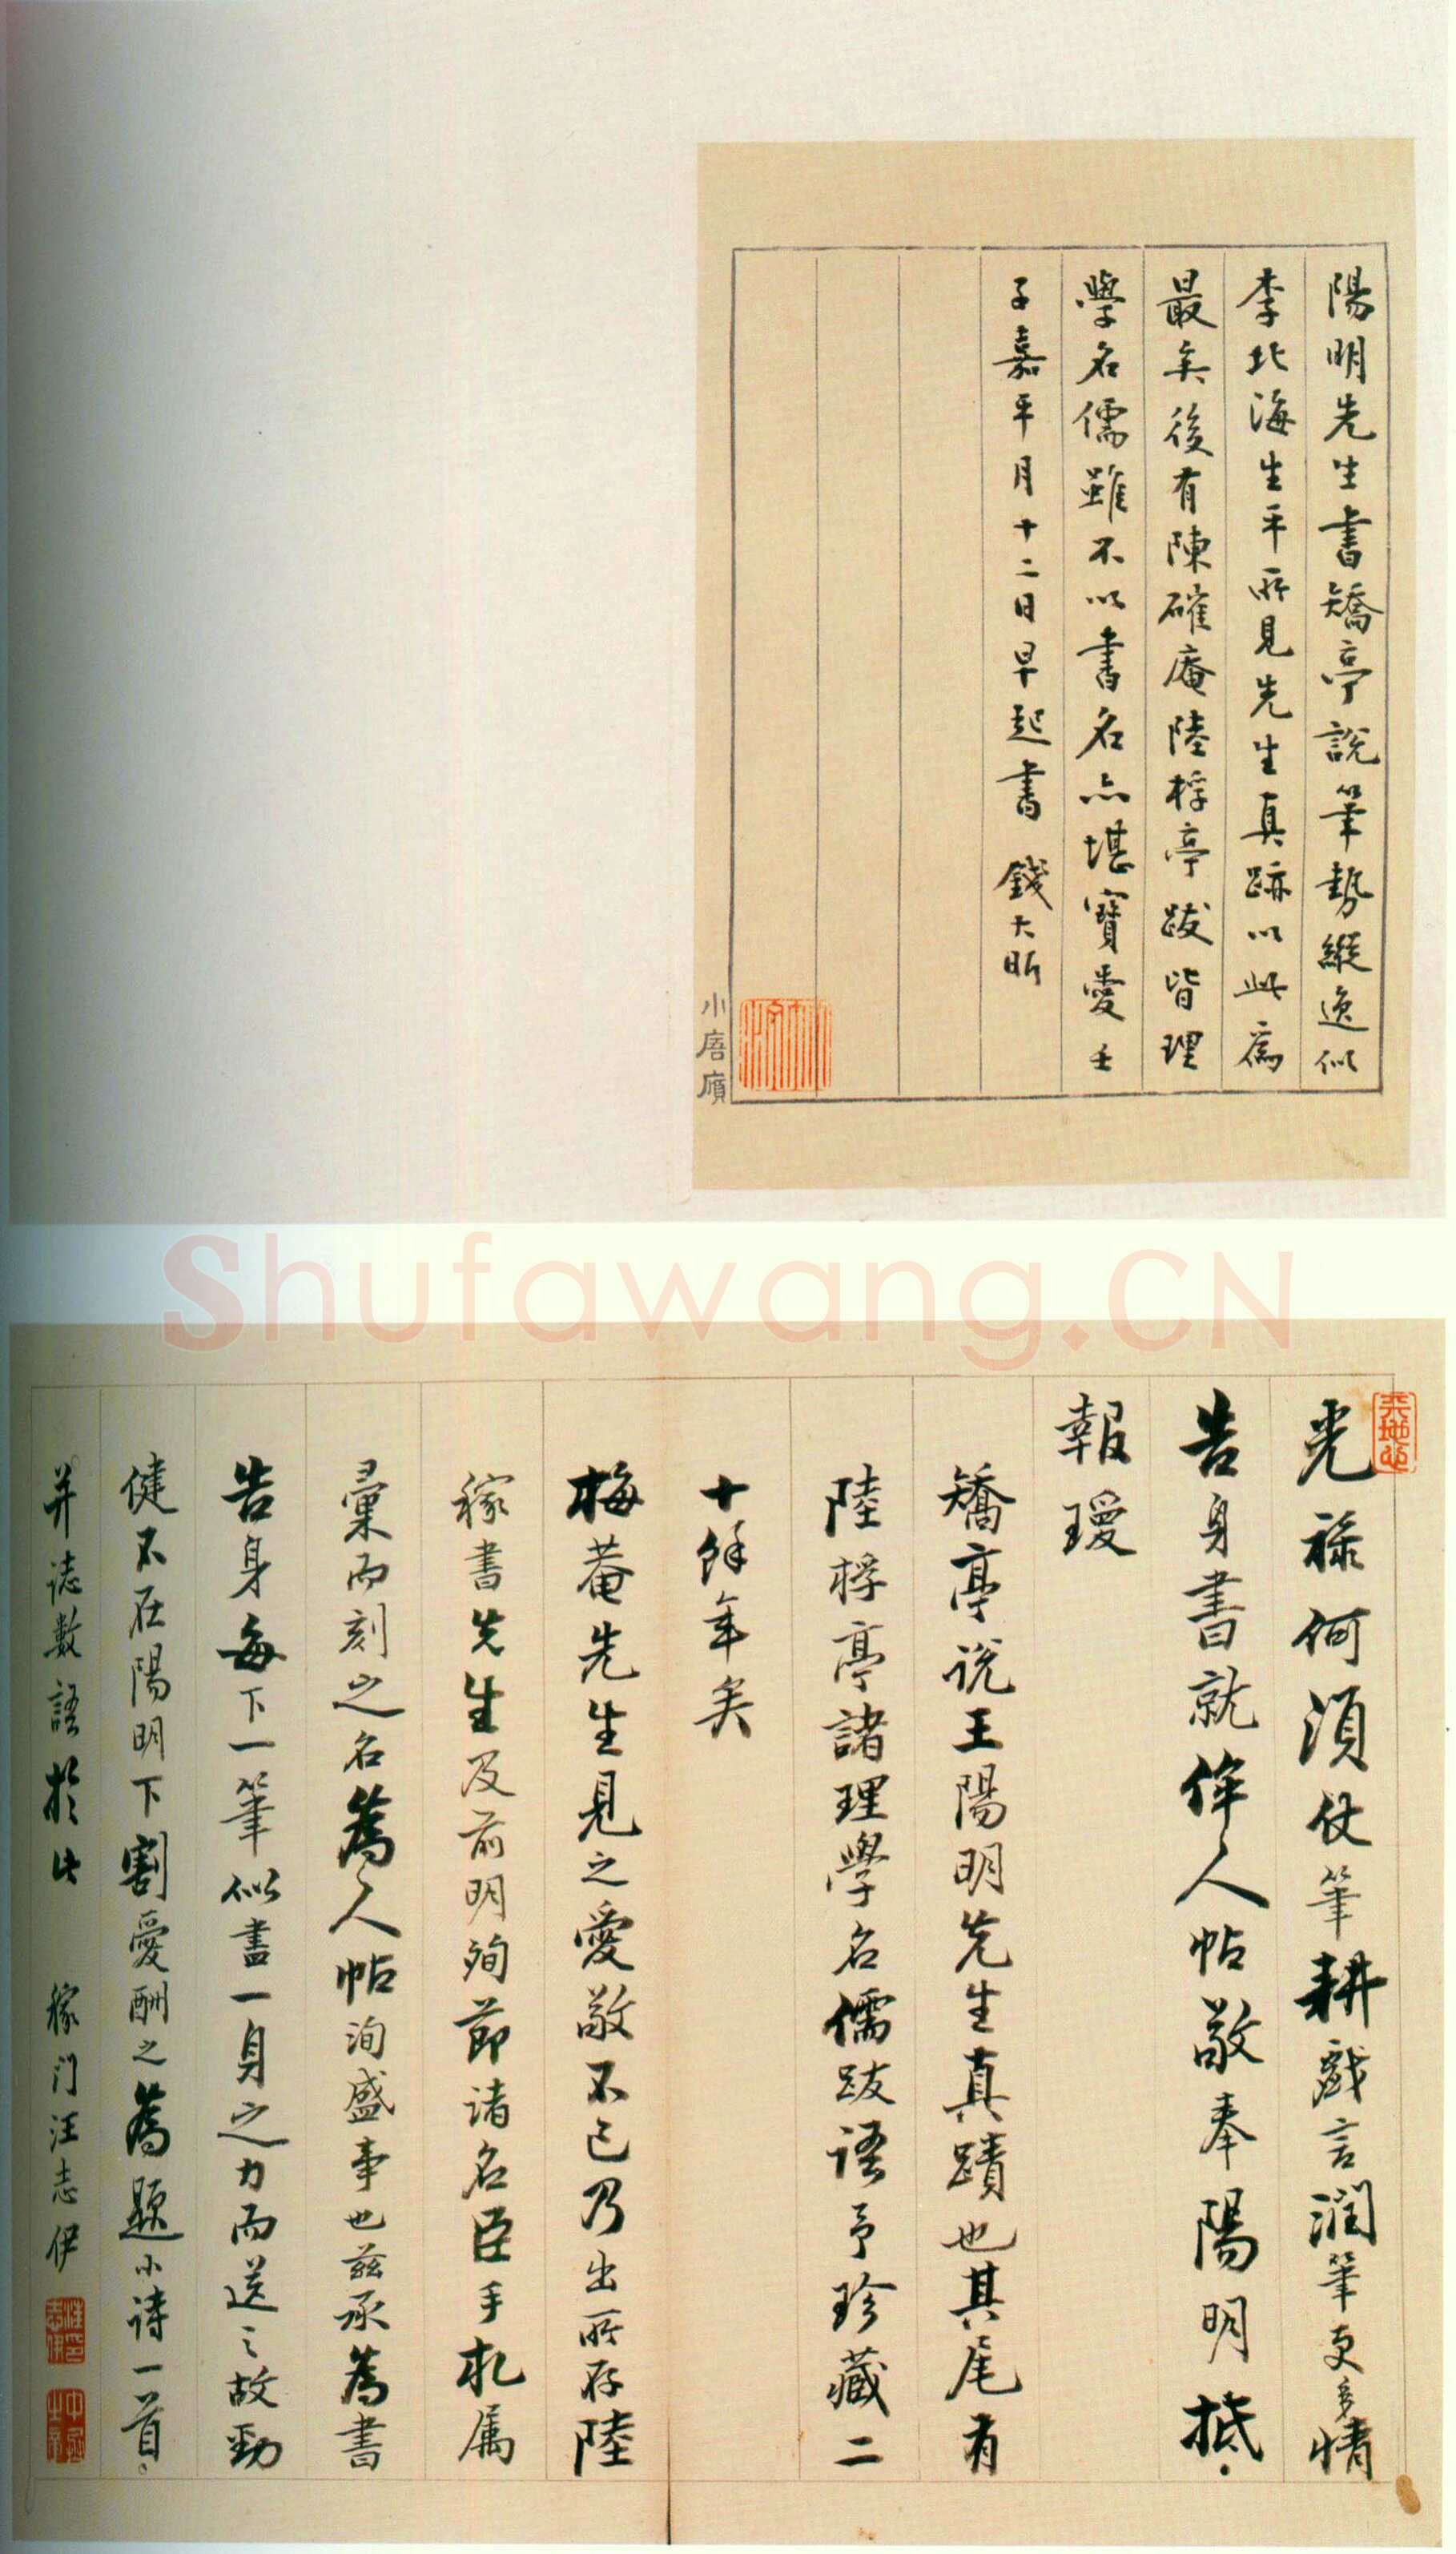 陽明先生書矯亭說筆勢縱逸似
李北海生平所見先生真跡以此為
最矣後有陳確庵陸桴亭跋皆理
學名儒雖不以書名亦堪寶愛壬
子嘉平月十二日早起書 錢大昕
Shufawang.CN
光祿何須仗筆耕戲言潤筆更多情
告身書就侔人帖敬奉陽明抵
報瓊
矯亭說王陽明先生真蹟也其尾有
陸桴亭諸理學名儒跋語予珍藏二
十餘年矣
梅菴先生見之愛敬不已乃出所存陸
稼書先生及前明殉節諸名臣手札属
彙而刻之名為人帖洵盛事也茲承為書
告身每下一筆似盡一身之力而送之故勁
健不在陽明下割愛酬之為題小詩一首
并誌數語於此 稼門汪志伊